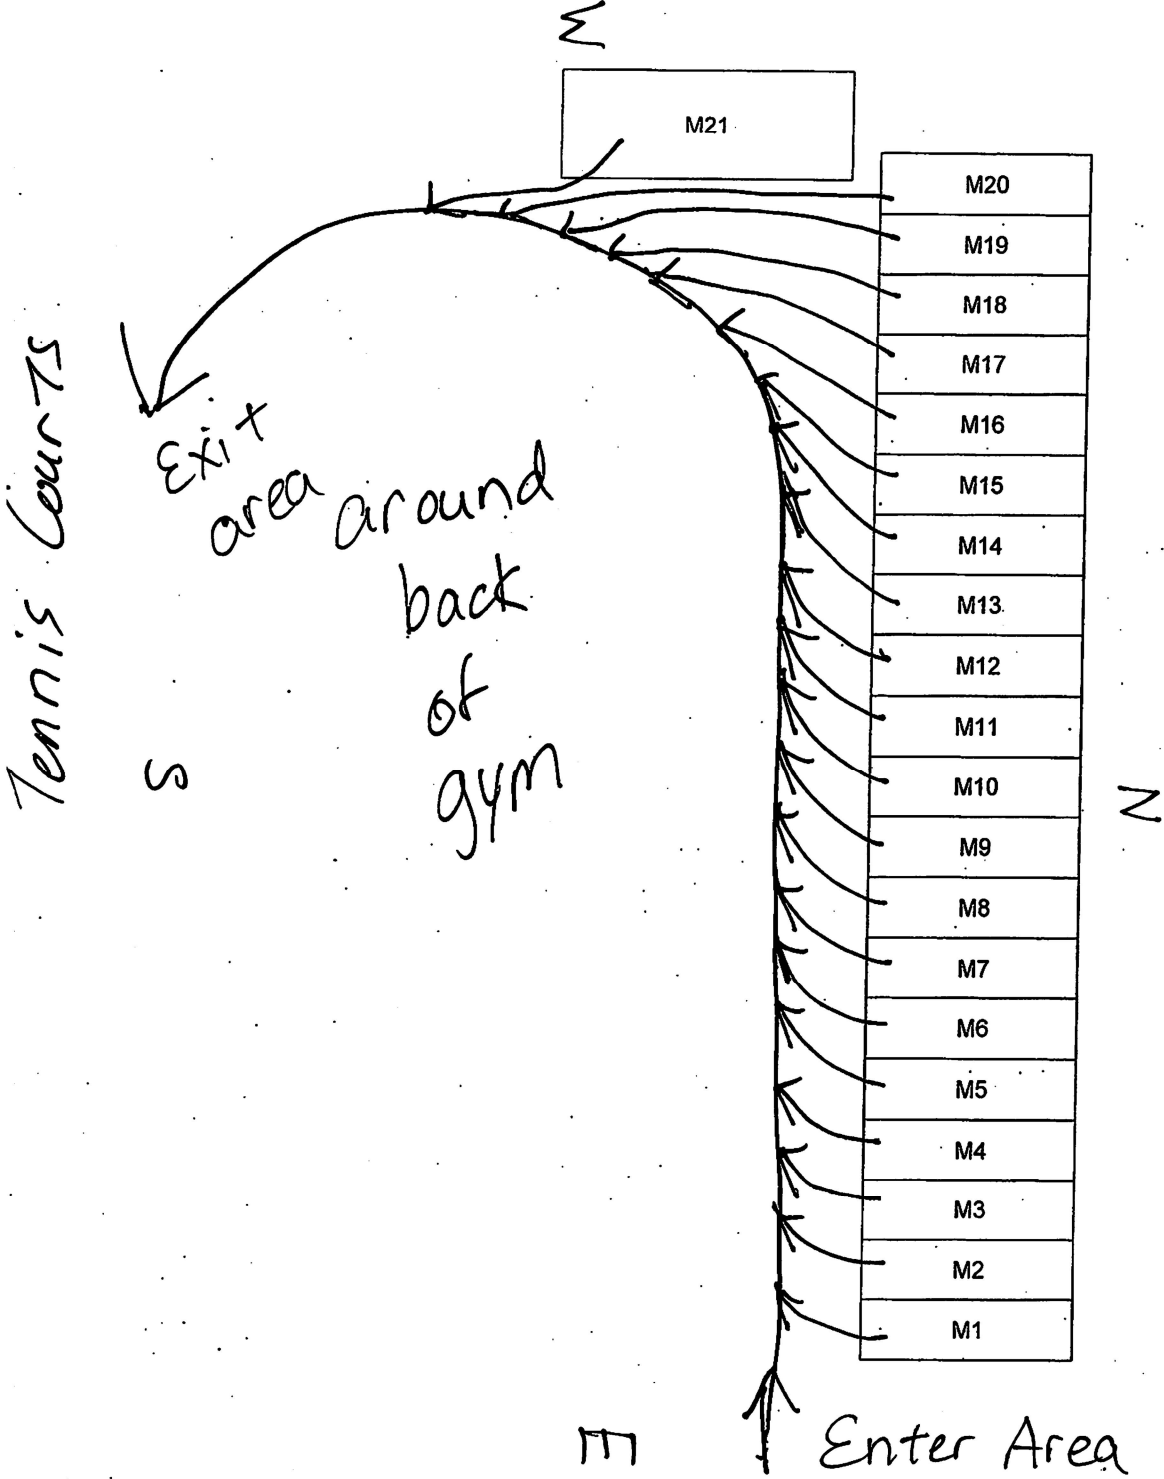 W
M21
M20
M19
M18
M17
M16
M15
M14
M13
M12
M11
M10
M9
M8
M7
M6
M5
M4
M3
M2
M1
Tennis Courts
Exit
area around
back
of
gym
S
N
E
Enter Area